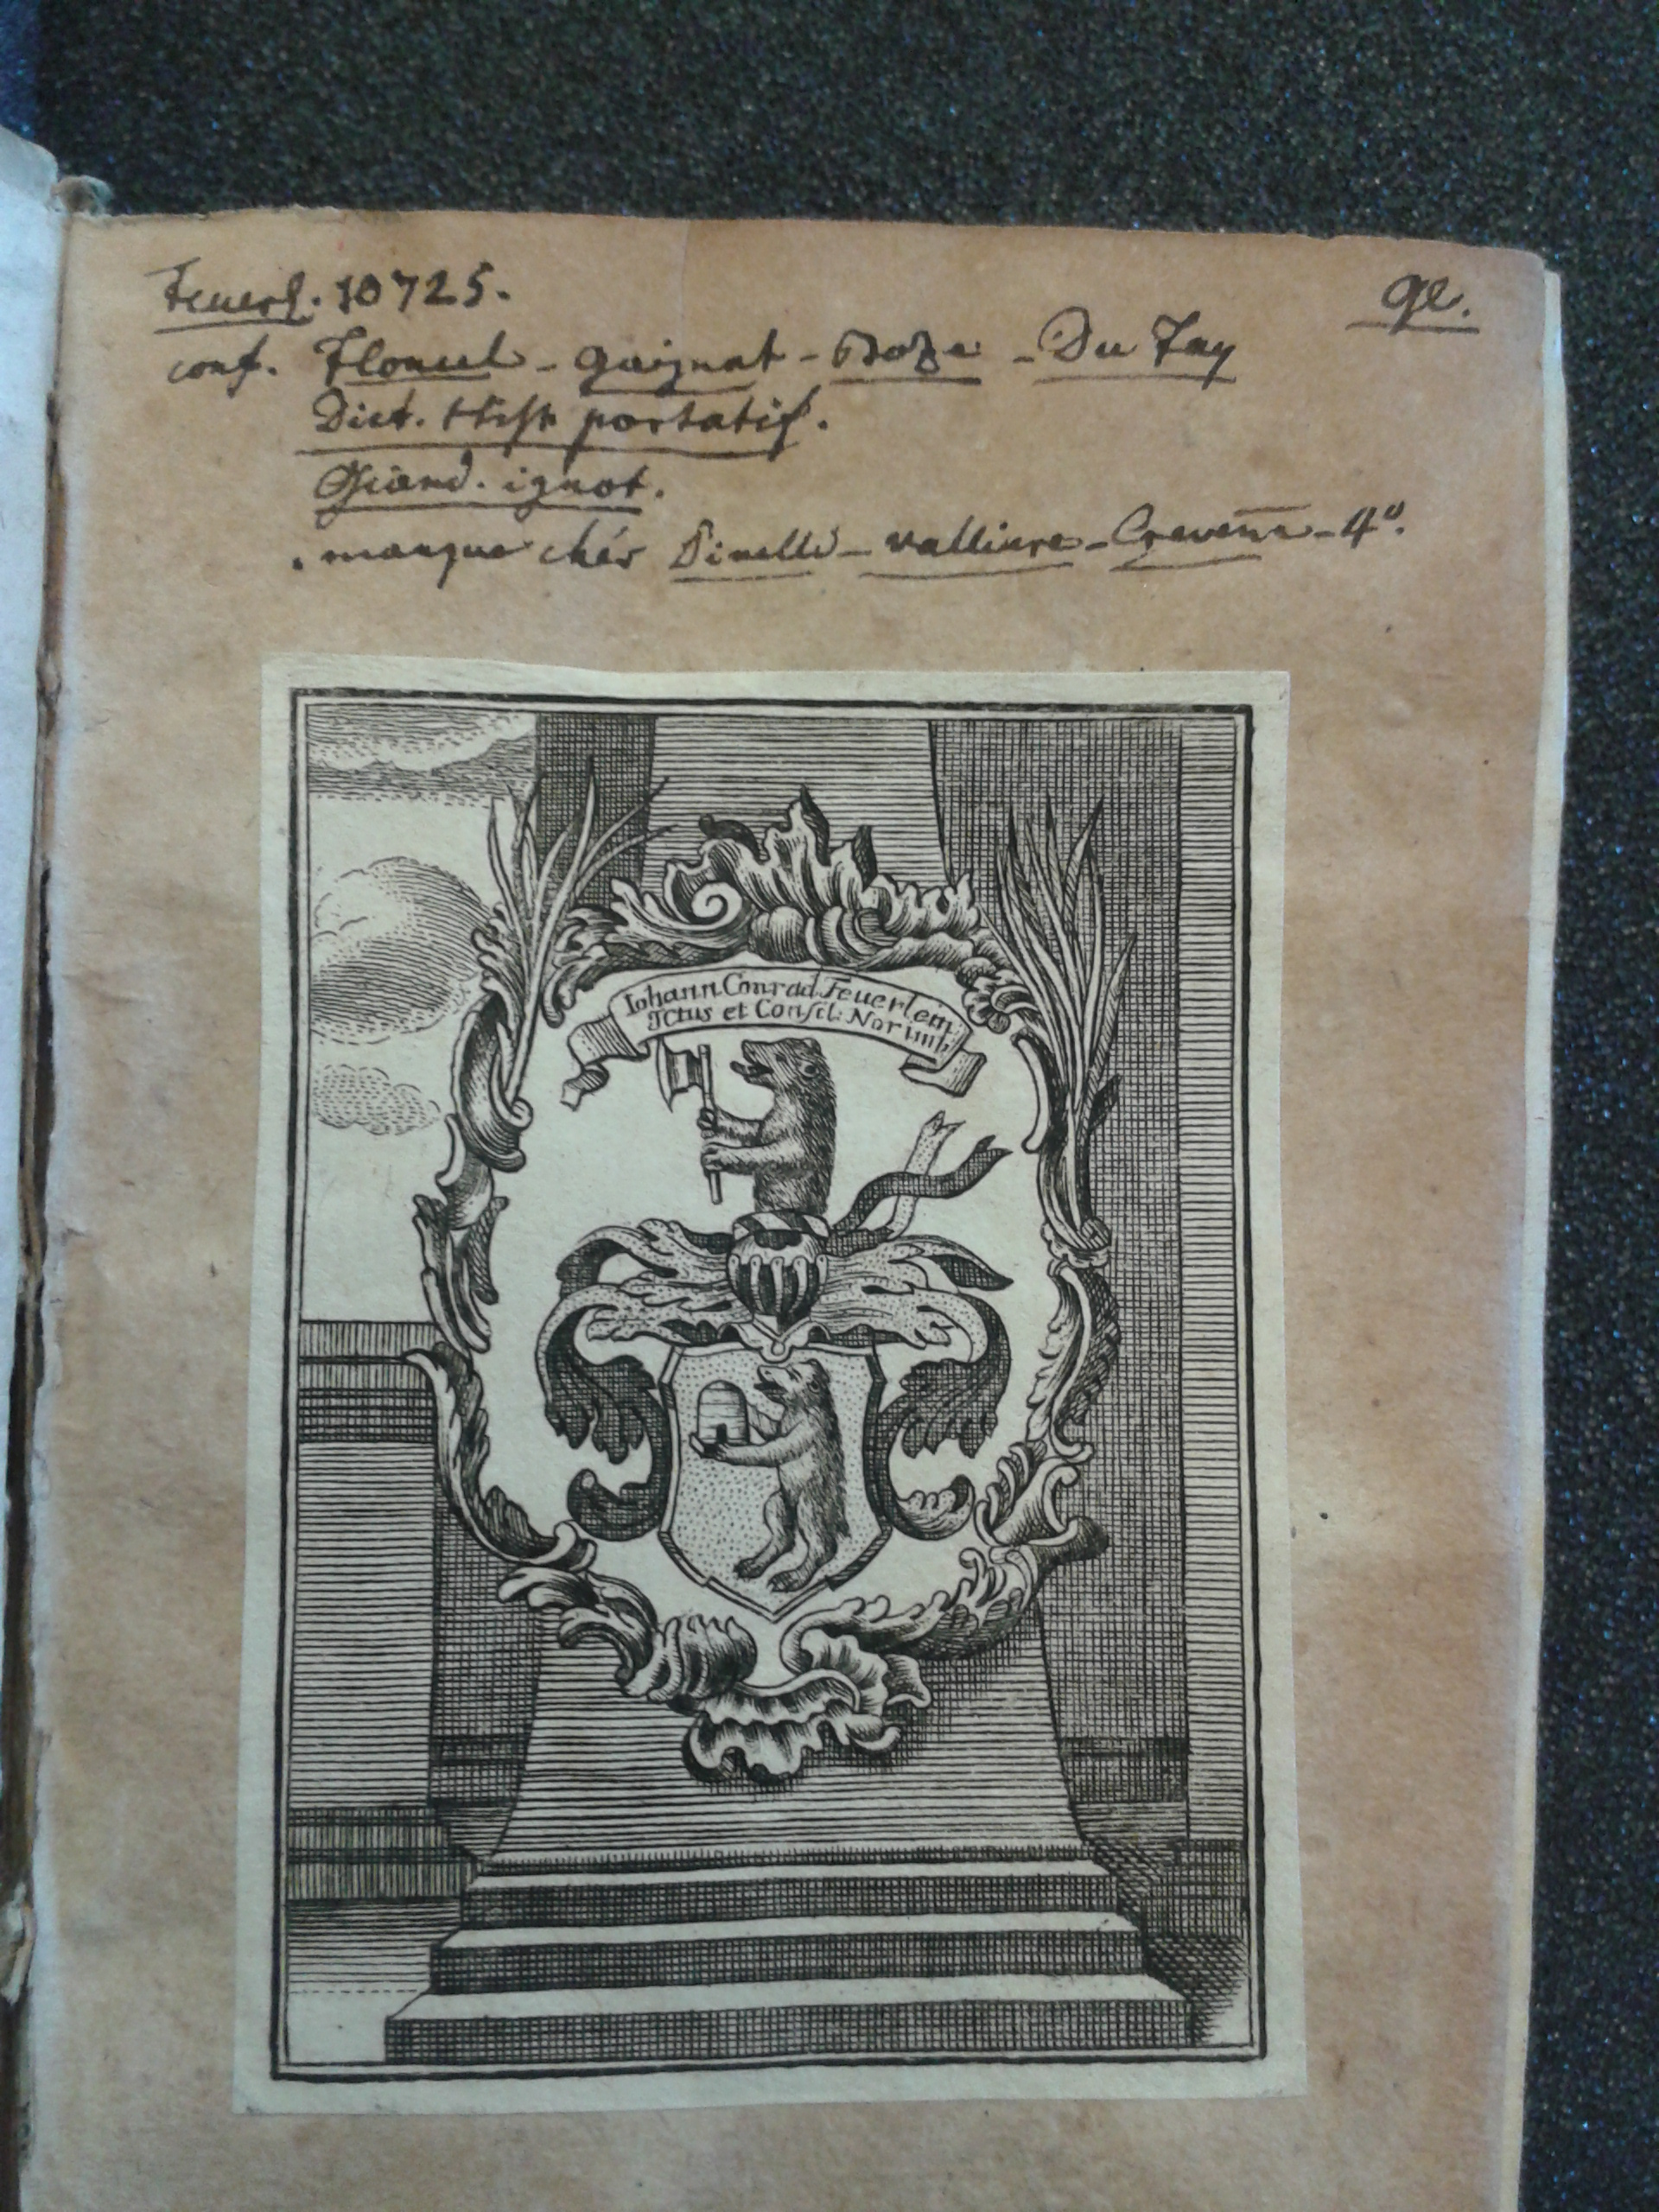 Feuerl. 10725. ge.
conf. Floncel - Gaignat - Boze - Du Fay
Dict. Hist. portatif.
Giand. ignot.
. manque chés Pinelli - Valliere - Creveñe - 4º.
Iohann Conrad Feuerlein
JCtus et Consil: Norimb: